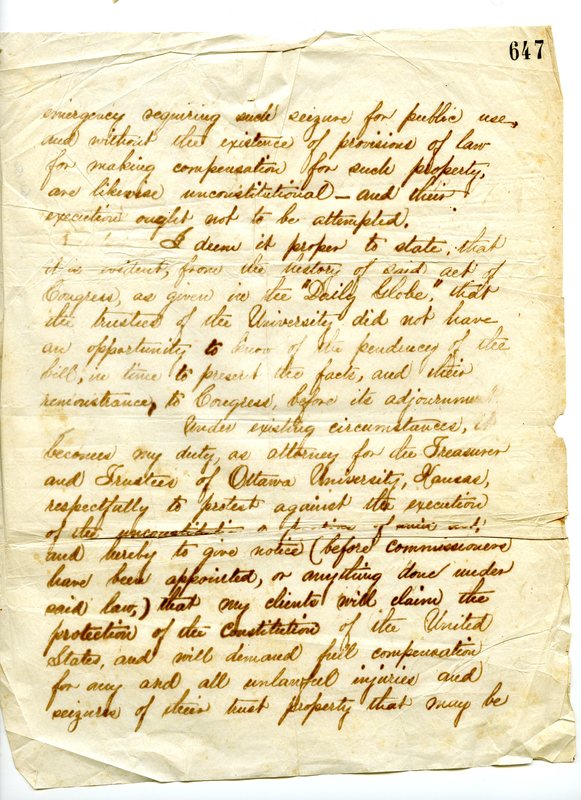 647
emergency requiring such seizure for public use,
and without the existence of provisions of law
for making compensation for such property,
are likewise unconstitutional — and their
execution ought not to be attempted.
I deem it proper to state, that
it is evident, from the history of said act of
Congress, as given in the "Daily Globe," that
the trustees of the University did not have
an opportunity to know of the pendency of the
bill, in time to present the facts, and their
remonstrance, to Congress, before its adjournment.
Under existing circumstances, it
becomes my duty, as attorney for the Treasurer
and Trustees of Ottawa University, Kansas,
respectfully to protest against the execution
of the portions of said act,
and hereby to give notice (before commissioners
have been appointed, or anything done under
said law,) that my clients will claim the
protection of the Constitution of the United
States, and will demand full compensation
for any and all unlawful injuries and
seizures of their trust property that may be